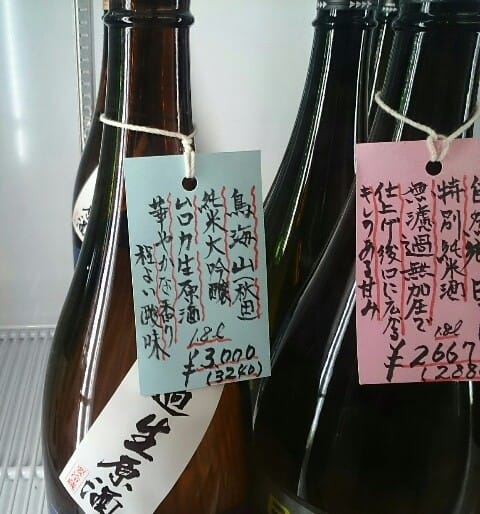 鳥海山 秋田
純米大吟醸
ムロカ生原酒
華やかな香り
程よい酸味
1.8ℓ
¥3,000
(3240)
自然
特別純米酒
無濾過無加圧で
仕上げ後口に広がる
キレのある甘み
1.8ℓ
¥2667
(288
過生原酒